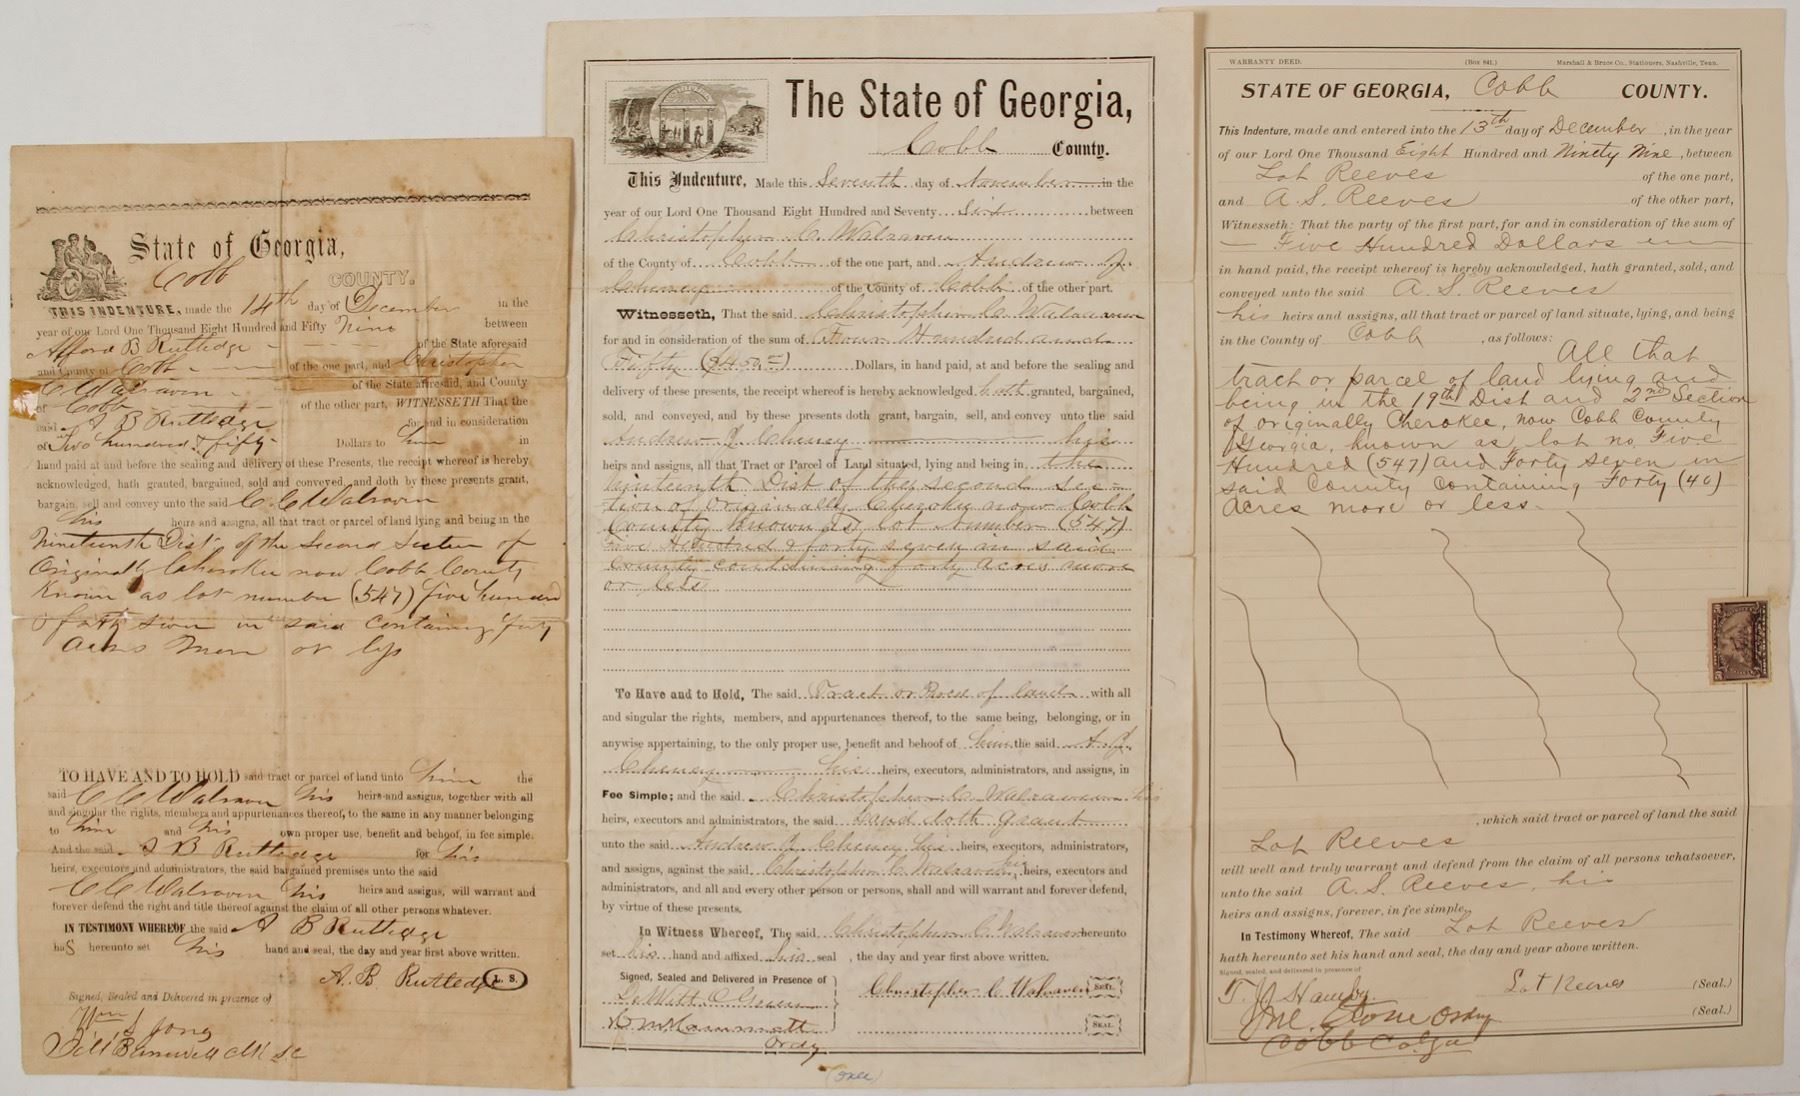 State of Georgia,
Cobb
COUNTY.
THIS INDENTURE, made the 14th day of December in the
year of our Lord One Thousand Eight Hundred and Fifty Nine between
Alford B Rutledge of the State aforesaid
and County of Cobb of the one part, and Christopher
C Walraven of the State aforesaid, and County
of Cobb of the other part, WITNESSETH That the
said A B Rutledge for and in consideration
of Two hundred & fifty Dollars to him in
hand paid at and before the sealing and delivery of these Presents, the receipt whereof is hereby
acknowledged, hath granted, bargained, sold and conveyed, and doth by these presents grant,
bargain, sell and convey unto the said C. C Walraven
his heirs and assigns, all that tract or parcel of land lying and being in the
Nineteenth Dist of the Second Section of
Originally Cherokee now Cobb County
Known as lot number (547) five hundred
& forty seven in said containing forty
acres more or less
TO HAVE AND TO HOLD said tract or parcel of land unto him the
said C C Walraven his heirs and assigns, together with all
and singular the rights, members and appurtenances thereof, to the same in any manner belonging
to him and his own proper use, benefit and behoof, in fee simple.
And the said A B Rutledge for his
heirs, executors and administrators, the said bargained premises unto the said
C C Walraven his heirs and assigns, will warrant and
forever defend the right and title thereof against the claim of all other persons whatever.
IN TESTIMONY WHEREOF the said A B Rutledge
haS hereunto set his hand and seal, the day and year first above written.
A. B. Rutledge L. S.
Signed, Sealed and Delivered in presence of
Wm J Jong
The State of Georgia,
Cobb County.
This Indenture, Made this Seventh day of November in the
year of our Lord One Thousand Eight Hundred and Seventy Six between
Christopher C. Walraven
of the County of Cobb of the one part, and Andrew J.
Cheney of the County of Cobb of the other part.
Witnesseth, That the said Christopher C. Walraven
for and in consideration of the sum of Four Hundred and
Fifty ($450.=) Dollars, in hand paid, at and before the sealing and
delivery of these presents, the receipt whereof is hereby acknowledged, hath granted, bargained,
sold, and conveyed, and by these presents doth grant, bargain, sell, and convey unto the said
Andrew J. Cheney his
heirs and assigns, all that Tract or Parcel of Land situated, lying and being in the
Ninteenth Dist of the second sec-
tion of Originally Cherokee now Cobb
County known as lot Number (547)
five Hundred & forty seven in said
County containing forty acres more
or less
To Have and to Hold, The said Tract or Parcel of land with all
and singular the rights, members, and appurtenances thereof, to the same being, belonging, or in
anywise appertaining, to the only proper use, benefit and behoof of him the said A. J.
Cheney his heirs, executors, administrators, and assigns, in
Fee Simple; and the said Christopher C. Walraven his
heirs, executors and administrators, the said land doth grant
unto the said Andrew J. Cheney his heirs, executors, administrators,
and assigns, against the said Christopher C Walraven his heirs, executors and
administrators, and all and every other person or persons, shall and will warrant and forever defend,
by virtue of these presents.
In Witness Whereof, The said Christopher C. Walraven hereunto
set his hand and affixed his seal , the day and year first above written.
Signed, Sealed and Delivered in Presence of
Christopher C Walraven SEAL
SEAL
Ordy
(over)
WARRANTY DEED. (Box 841.) Marshall & Bruce Co., Stationers, Nashville, Tenn.
STATE OF GEORGIA, Cobb COUNTY.
This Indenture, made and entered into the 13th day of December , in the year
of our Lord One Thousand Eight Hundred and Ninety Nine , between
Lot Reeves of the one part,
and A. S. Reeves of the other part,
Witnesseth: That the party of the first part, for and in consideration of the sum of
Five Hundred Dollars
in hand paid, the receipt whereof is hereby acknowledged, hath granted, sold, and
conveyed unto the said A. S. Reeves
his heirs and assigns, all that tract or parcel of land situate, lying, and being
in the County of Cobb , as follows: All that
tract or parcel of land lying and
being in the 19th Dist and 2nd Section
of originally Cherokee, now Cobb County
Georgia, known as lot no. Five
Hundred (547) and Forty seven in
said County containing Forty (40)
acres more or less.
, which said tract or parcel of land the said
Lot Reeves
will well and truly warrant and defend from the claim of all persons whatsoever,
unto the said A. S. Reeves, his
heirs and assigns, forever, in fee simple.
In Testimony Whereof, The said Lot Reeves
hath hereunto set his hand and seal, the day and year above written.
Signed, sealed, and delivered in presence of
Lot Reeves (Seal.)
T. J. Hamby. (Seal.)
Jno. Stone Ordy
Cobb Co. Ga